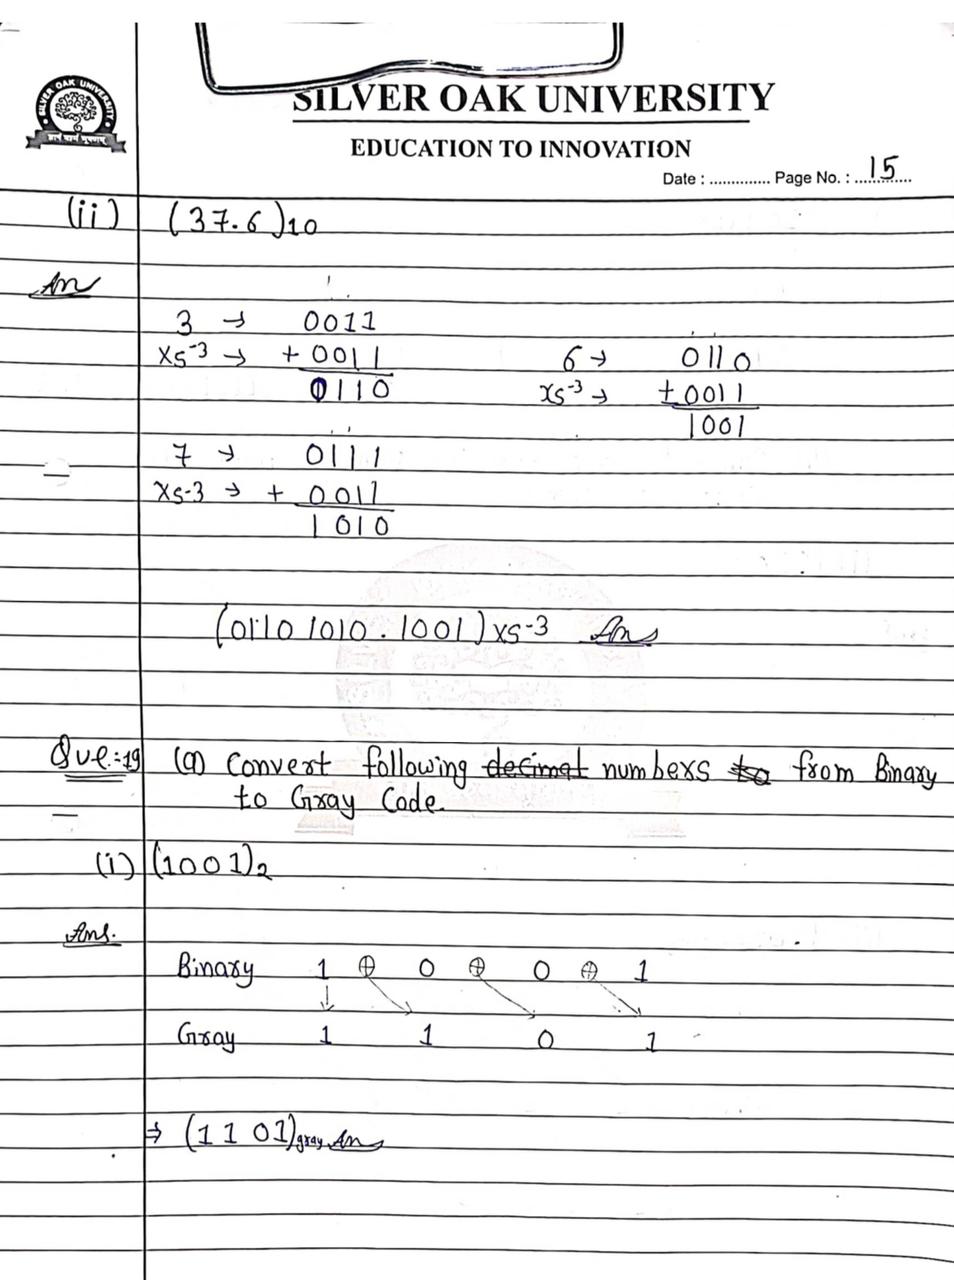 SILVER OAK UNIVERSITY
SILVER OAK UNIVERSITY
EDUCATION TO INNOVATION
Date : .............. Page No. : ...15...
(ii) (37.6)10
An
3 → 0011
xs-3 → + 0011 6 → 0110
0110 xs-3 → + 0011
1001
7 → 0111
xs-3 → + 0011
1010
(0110 1010 . 1001)xs-3 Ans
Que:-19 (a) Convert following decimal numbers to from Binary
to Gray Code.
(i) (1001)2
Ans.
Binary 1 ⊕ 0 ⊕ 0 ⊕ 1
Gray 1 1 0 1
⇒ (1 1 01)gray Ans